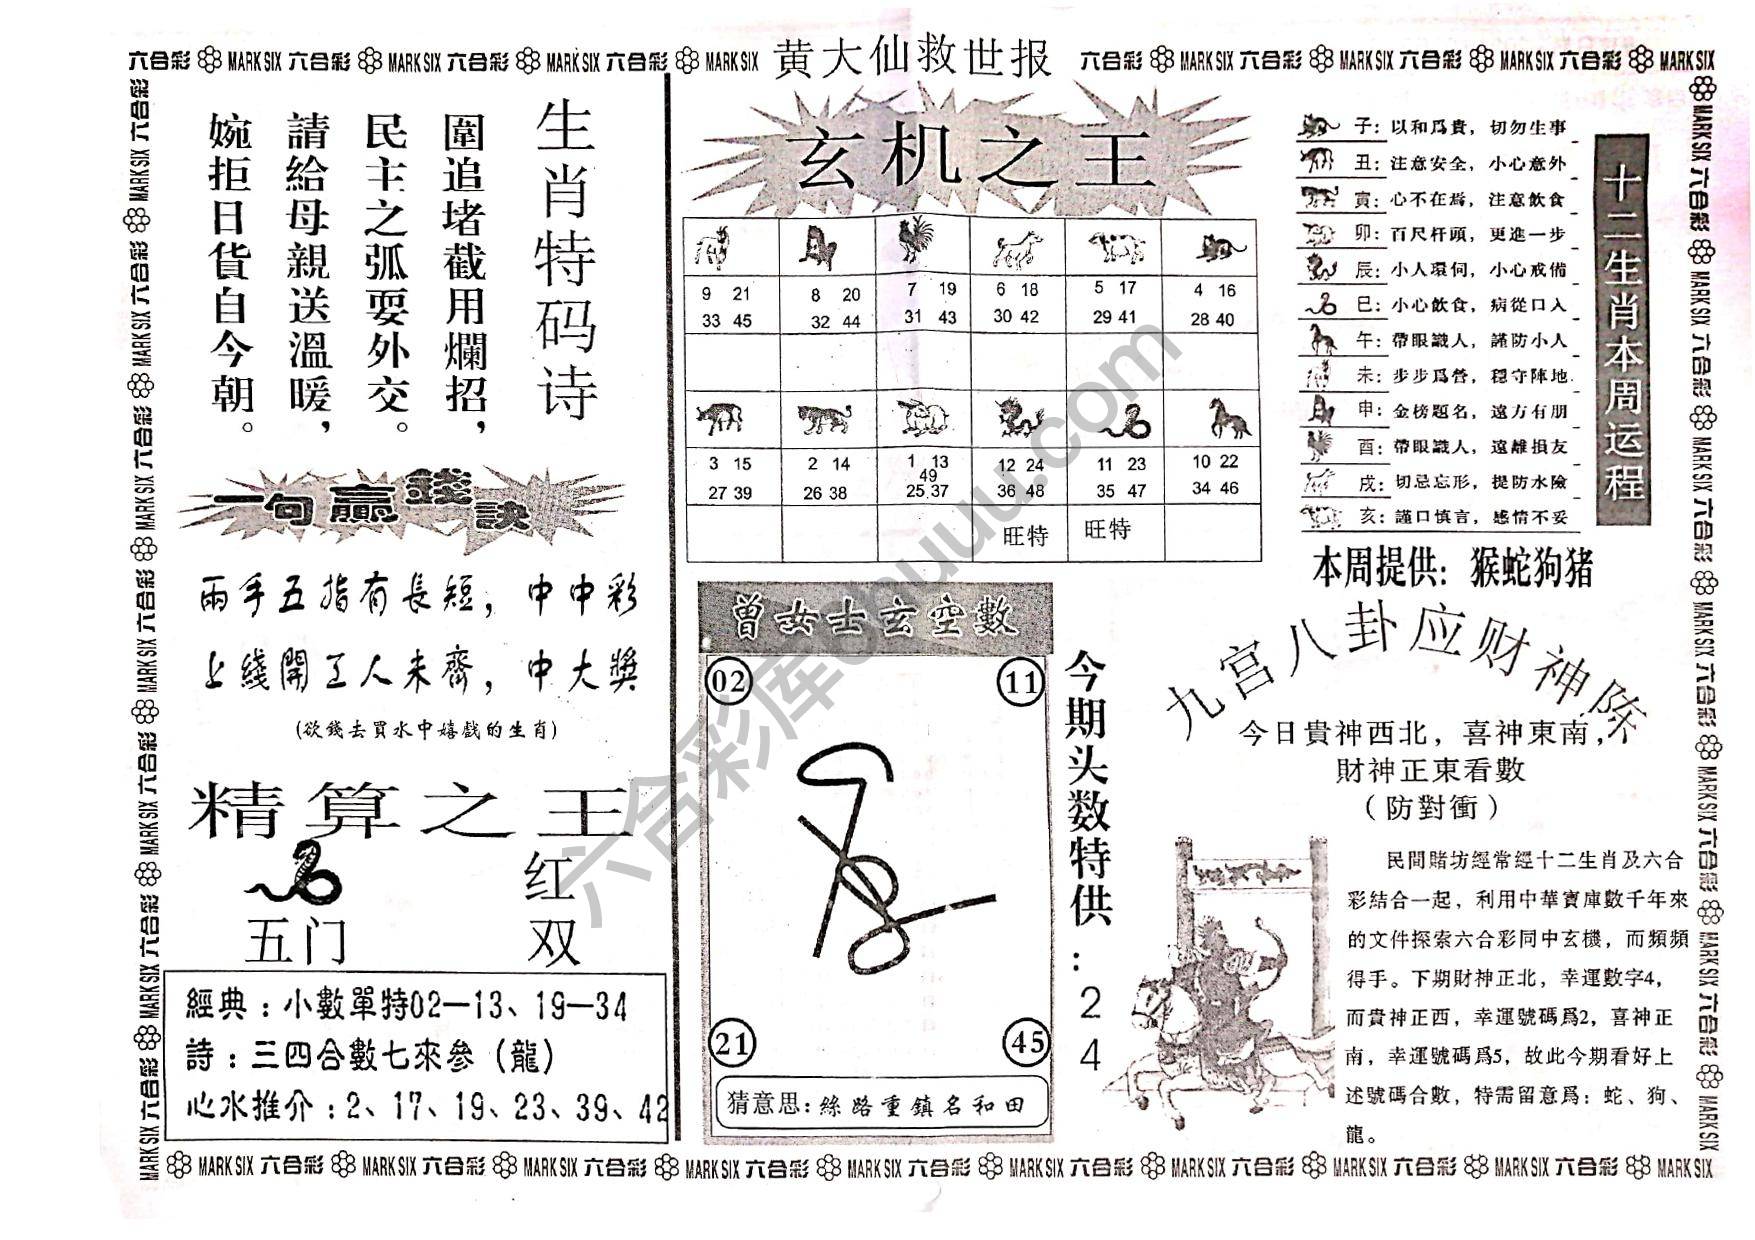 六合彩 MARK SIX 六合彩 MARK SIX 六合彩 MARK SIX 六合彩 MARK SIX 黄大仙救世报 六合彩 MARK SIX 六合彩 MARK SIX 六合彩 MARK SIX 六合彩 MARK SIX
生肖特码诗
圍追堵截用爛招，
民主之弧耍外交。
請給母親送溫暖，
婉拒日貨自今朝。
一句贏錢訣
兩手五指有長短，中中彩
上綫開工人未齊，中大獎
(欲錢去買水中嬉戲的生肖)
精算之王
红
五门 双
經典：小數單特02—13、19—34
詩：三四合數七來參（龍）
心水推介：2、17、19、23、39、42
玄机之王
9 21 8 20 7 19 6 18 5 17 4 16
33 45 32 44 31 43 30 42 29 41 28 40
3 15 2 14 1 13 12 24 11 23 10 22
49
27 39 26 38 25 37 36 48 35 47 34 46
旺特 旺特
曾女士玄空數
02 11
21 45
猜意思：絲路重鎮名和田
今期头数特供：24
十二生肖本周运程
子：以和爲貴，切勿生事
丑：注意安全，小心意外
寅：心不在焉，注意飲食
卯：百尺杆頭，更進一步
辰：小人環伺，小心戒備
巳：小心飲食，病從口入
午：帶眼識人，謹防小人
未：步步爲營，穩守陣地
申：金榜題名，遠方有朋
酉：帶眼識人，遠離損友
戌：切忌忘形，提防水險
亥：謹口慎言，感情不妥
本周提供：猴蛇狗猪
九宫八卦应财神陈
今日貴神西北，喜神東南，不
財神正東看數
（防對衝）
民間賭坊經常經十二生肖及六合
彩結合一起，利用中華寶庫數千年來
的文件探索六合彩同中玄機，而頻頻
得手。下期財神正北，幸運數字4，
而貴神正西，幸運號碼爲2，喜神正
南，幸運號碼爲5，故此今期看好上
述號碼合數，特需留意爲：蛇、狗、
龍。
MARK SIX 六合彩 MARK SIX 六合彩 MARK SIX 六合彩 MARK SIX 六合彩 MARK SIX 六合彩 MARK SIX 六合彩 MARK SIX 六合彩 MARK SIX 六合彩 MARK SIX 六合彩 MARK SIX